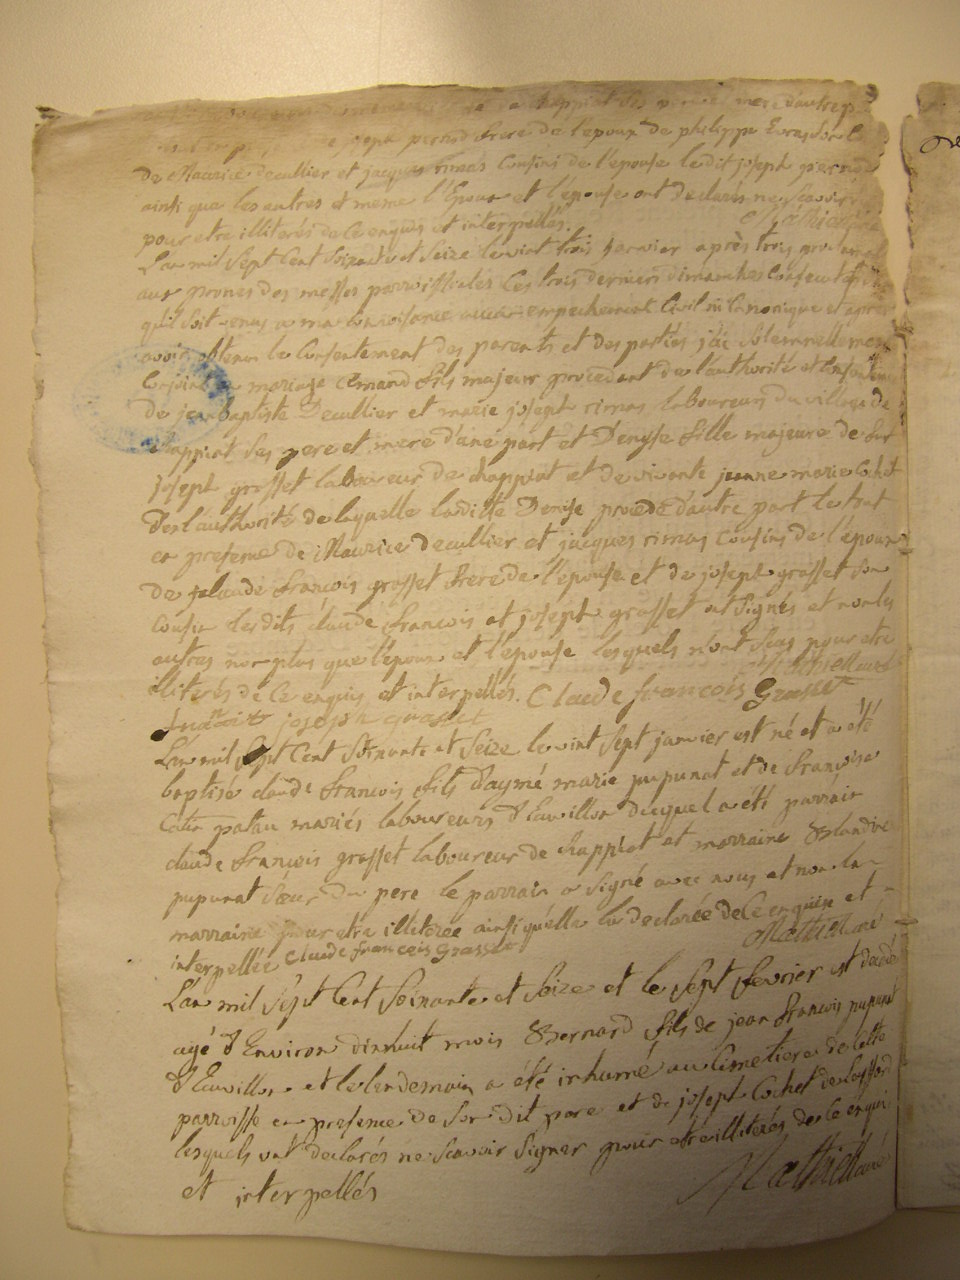 de chappiat ses pere et mere d'autre p
joseph pernod frere de l'epoux de philippe
de Maurice decullier et jacques rimas cousins de l'epouse le dit joseph pernod
ainsi que les autres et meme l'Epoux et l'epouse ont declarés ne scavoir
pour etre illiterés de ce enquis et interpellés.
L'an mil sept cent soixante et seize le vint trois janvier après trois
aux prones des messes parroissiales les trois derniers dimanches consecutifs
qu'il soit venus a ma connoissance aucun empechement civil ni canonique et après
avoir obtenu le consentement des parents et des parties j'ai solemnellement
conjoint en mariage Amand fils majeur procedant de l'authorité et consentement
de jean baptiste Decullier et marie joseph rimas laboureurs du village de
chappiat ses pere et mere d'une part et Denyse fille majeure de feu
joseph grosset laboureur de chappiat et de vivante jeanne marie cochet
de l'authorité de laquelle laditte Denise procede d'autre part le tout
en presence de Maurice decullier et jacques rimas cousins de l'epoux
de claude francois grosset frere de l'epouse et de joseph grosset son
cousin lesdits claude francois et joseph grosset ont signés et non les
autres non plus que l'epoux et l'epouse lesquels n'ont sçus pour etre
illiterés de ce enquis et interpellés. Claude francois Grosset
joseph grosset
L'an mil sept cent soixante et seize le vint sept janvier est né et a été
baptisé claude francois fils d'aymé marie pupunat et de francoise
patau mariés laboureurs d'Eauvillon duquel a été parrain
claude francois grosset laboureur de chappiat et marraine Blandine
pupunat sœur du pere le parrain a signé avec nous et non la
marraine pour etre illiterée ainsi qu'elle l'a declarée de ce enquise et
interpellée Claude francois Grosset
L'an mil sept cent soixante et seize et le sept fevrier est decedé
agé d'Environ dixhuit mois Bernard fils de jean francois pupunat
d'Eauvillon et le lendemain a été inhumé au cimetiere de cette
parroisse en presence de son dit pere et de joseph cochet de
lesquels ont declarés ne scavoir signer pour etre illiterés de ce enquis
et interpellés